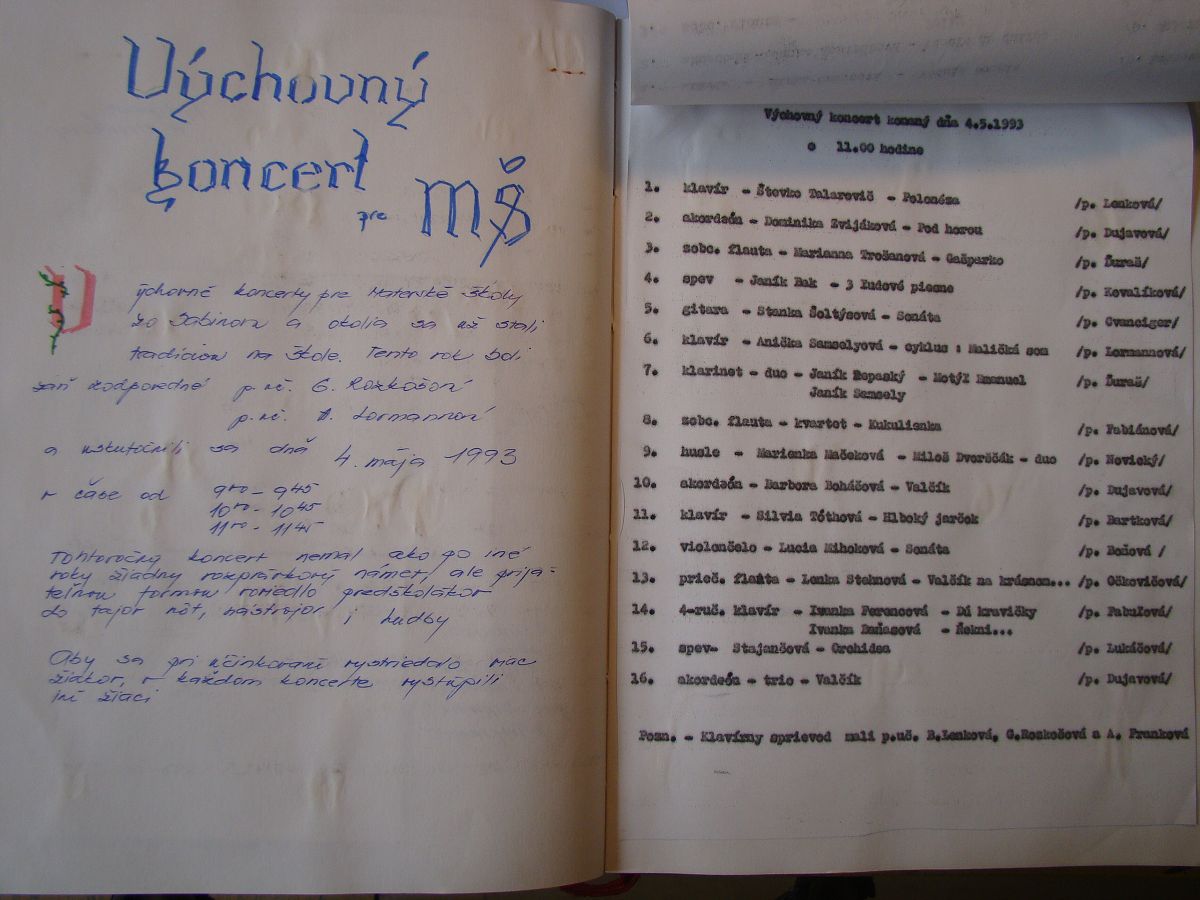 Výchovný
koncert
pre MŠ
Výchovné koncerty pre Materské školy
zo Sabinova a okolia sa už stali
tradíciou na škole. Tento rok boli
zaň zodpovedné p. uč. G. Rozkošová
p. uč. A. Lormannová
a uskutočnili sa dňa 4. mája 1993
v čase od 9⁰⁰ - 9⁴⁵
10⁰⁰ - 10⁴⁵
11⁰⁰ - 11⁴⁵
Tohtoročný koncert nemal ako po iné
roky žiadny rozprávkový námet, ale prija-
teľnou formou voviedlo predškolákov
do tajov nôt, nástrojov i hudby
Aby sa pri účinkovaní vystriedalo viac
žiakov, v každom koncerte vystúpili
iní žiaci
Výchovný koncert konaný dňa 4.5.1993
o 11.00 hodine
1. klavír - Števko Talarovič - Polonéza /p. Lenková/
2. akordeón - Dominika Zvijáková - Pod horou /p. Dujavová/
3. zobc. flauta - Marianna Trošanová - Gašparko /p. Ďuraš/
4. spev - Janík Bak - 3 ľudové piesne /p. Kovalíková/
5. gitara - Stanka Šoltýsová - Sonáta /p. Cvanciger/
6. klavír - Anička Samselyová - cyklus : Maličká som /p. Lormannová/
7. klarinet - duo - Janík Repaský - Motýľ Emanuel /p. Ďuraš/
Janík Samsely
8. zobc. flauta - kvartet - Kukulienka /p. Fabiánová/
9. husle - Marienka Mačeková - Miloš Dvorščák - duo /p. Novický/
10. akordeón - Barbora Boháčová - Valčík /p. Dujavová/
11. klavír - Silvia Tóthová - Hlboký jarčok /p. Bartková/
12. violončelo - Lucia Mihoková - Sonáta /p. Boňová /
13. prieč. flauta - Lenka Stehnová - Valčík na krásnom... /p. Očkovičová/
14. 4-ruč. klavír - Ivanka Ferencová - Dú kravičky /p. Fabuľová/
Ivanka Baňasová - Řekni...
15. spev- Stajančová - Orchidea /p. Lukáčová/
16. akordeón - trio - Valčík /p. Dujavová/
Pozn. - Klavírny sprievod mali p.uč. B.Lenková, G.Rozkošová a A. Franková